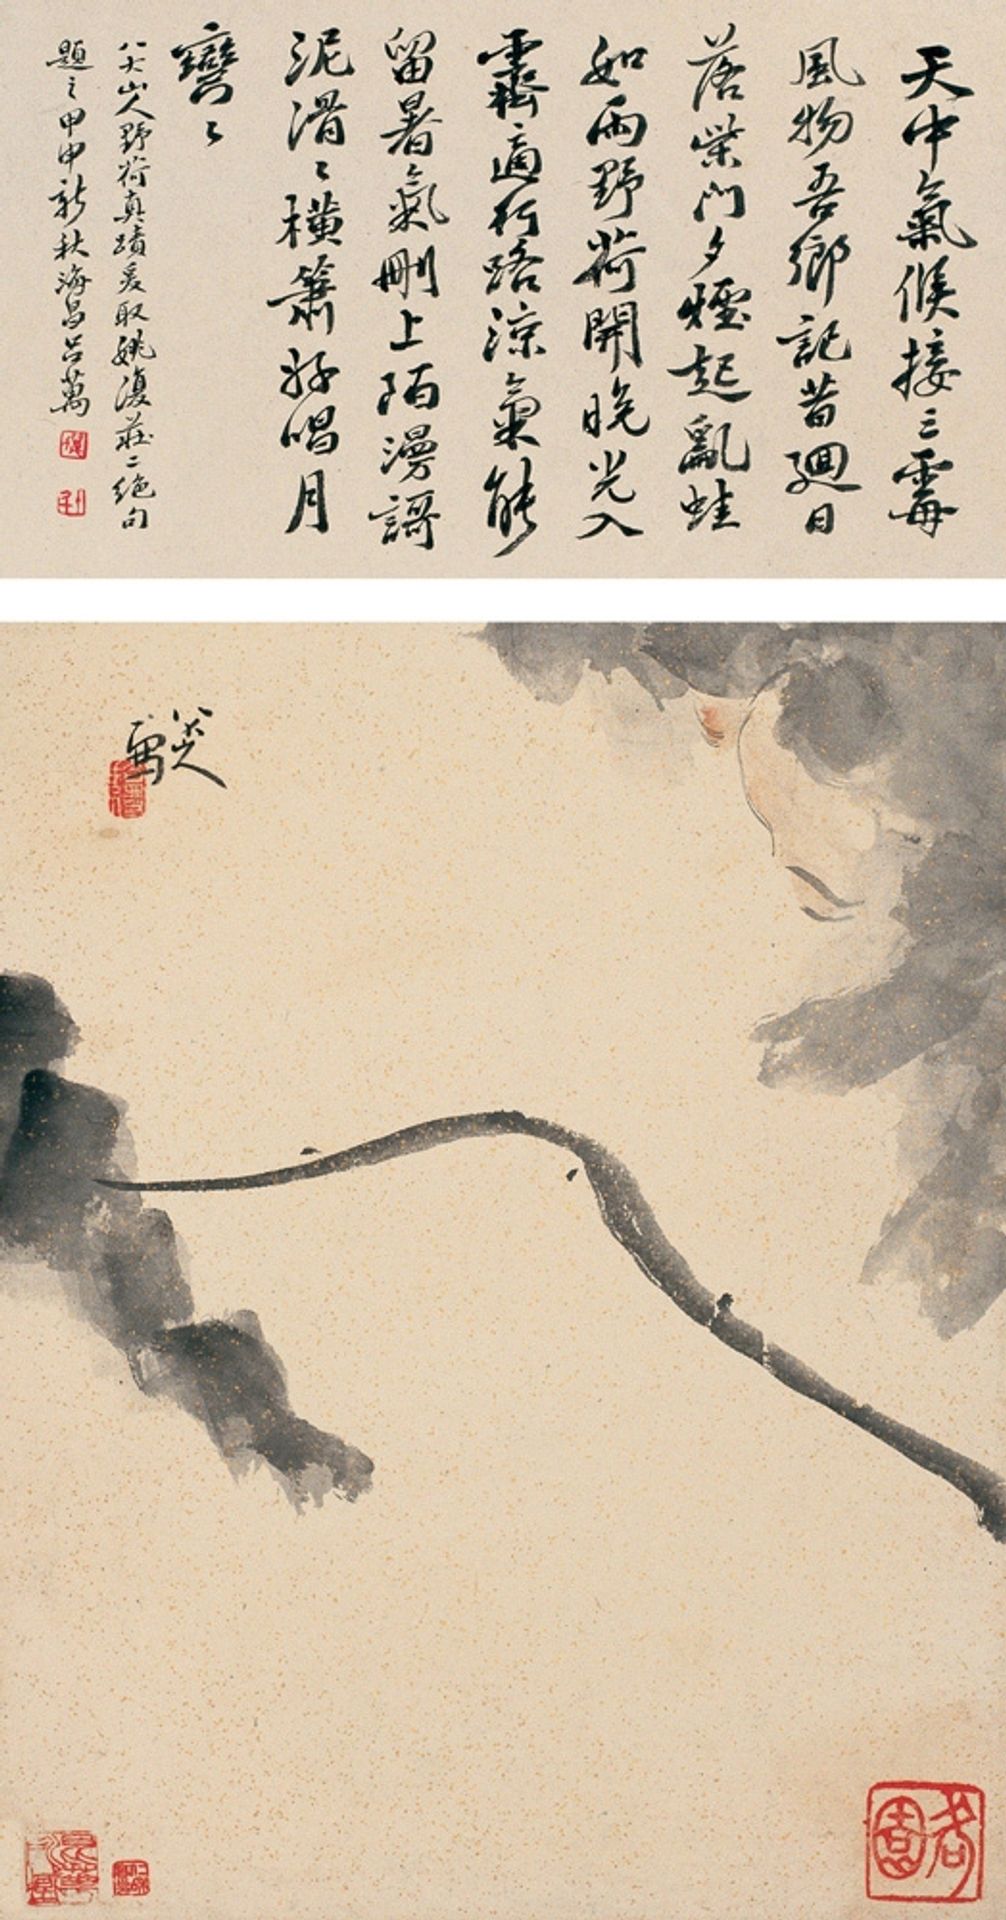 天中氣候接三霉
風物吾鄉記昔迴日
落柴門夕煙起亂蛙
如雨野荷開晚光入
霧適行路涼氣能
留暑氣刪上陌漫謌
泥滑〻橫簫好唱月
彎〻
八大山人野荷真蹟爰取姚復莊二絕句
題之甲申新秋海昌呂萬
八大山人
寫